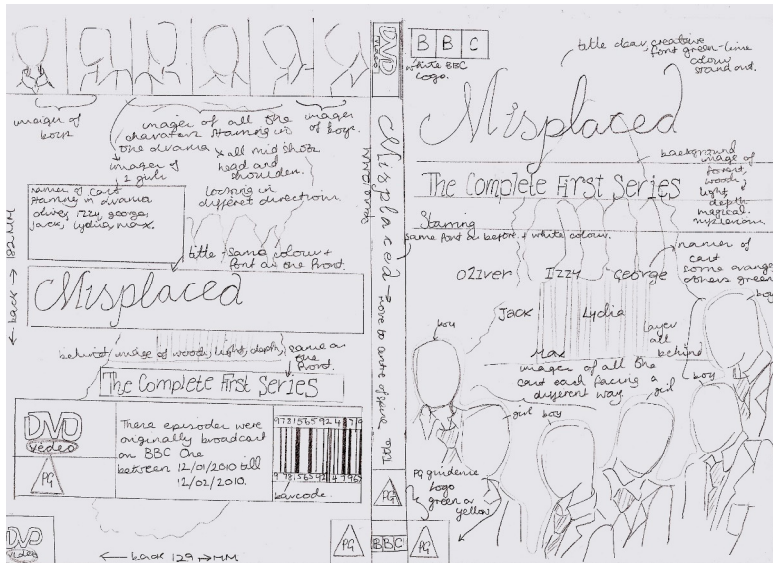 images of boys
images of all the
characters starring in
the drama
images of
2 girls
x all mid shots
head and
shoulders
looking in
different directions
images
of boys.
names of cast
starring in drama
oliver, Izzy, george,
jack, lydia max.
title - same colour +
font as the front.
Misplaced
behind, image of woods, light, depth,
same as
the
front.
The Complete First Series
DVD
video
PG
These episodes were
originally broadcast
on BBC One
between 12/01/2010 till
12/02/2010.
barcode.
← back → 182MM
DVD
video
← back 129 → MM
PG
DVD
video
Misplaced
move to centre of spine
PG
BBC
BBC
white BBC
logo.
title clear, creative
font green-lime
colour
stand out.
Misplaced
background
image of
forest,
woods,
light &
depth
magical
mysterious.
The Complete First Series
Starring
same font as before + white colour.
names of
cast
some orange
others green
Oliver Izzy George
Jack Lydia
Max
layer
all
behind
images of all the
cast each facing a
different way.
boy
boy
girl
boy
girl
boy
PG guidence
logo
green or
yellow
PG